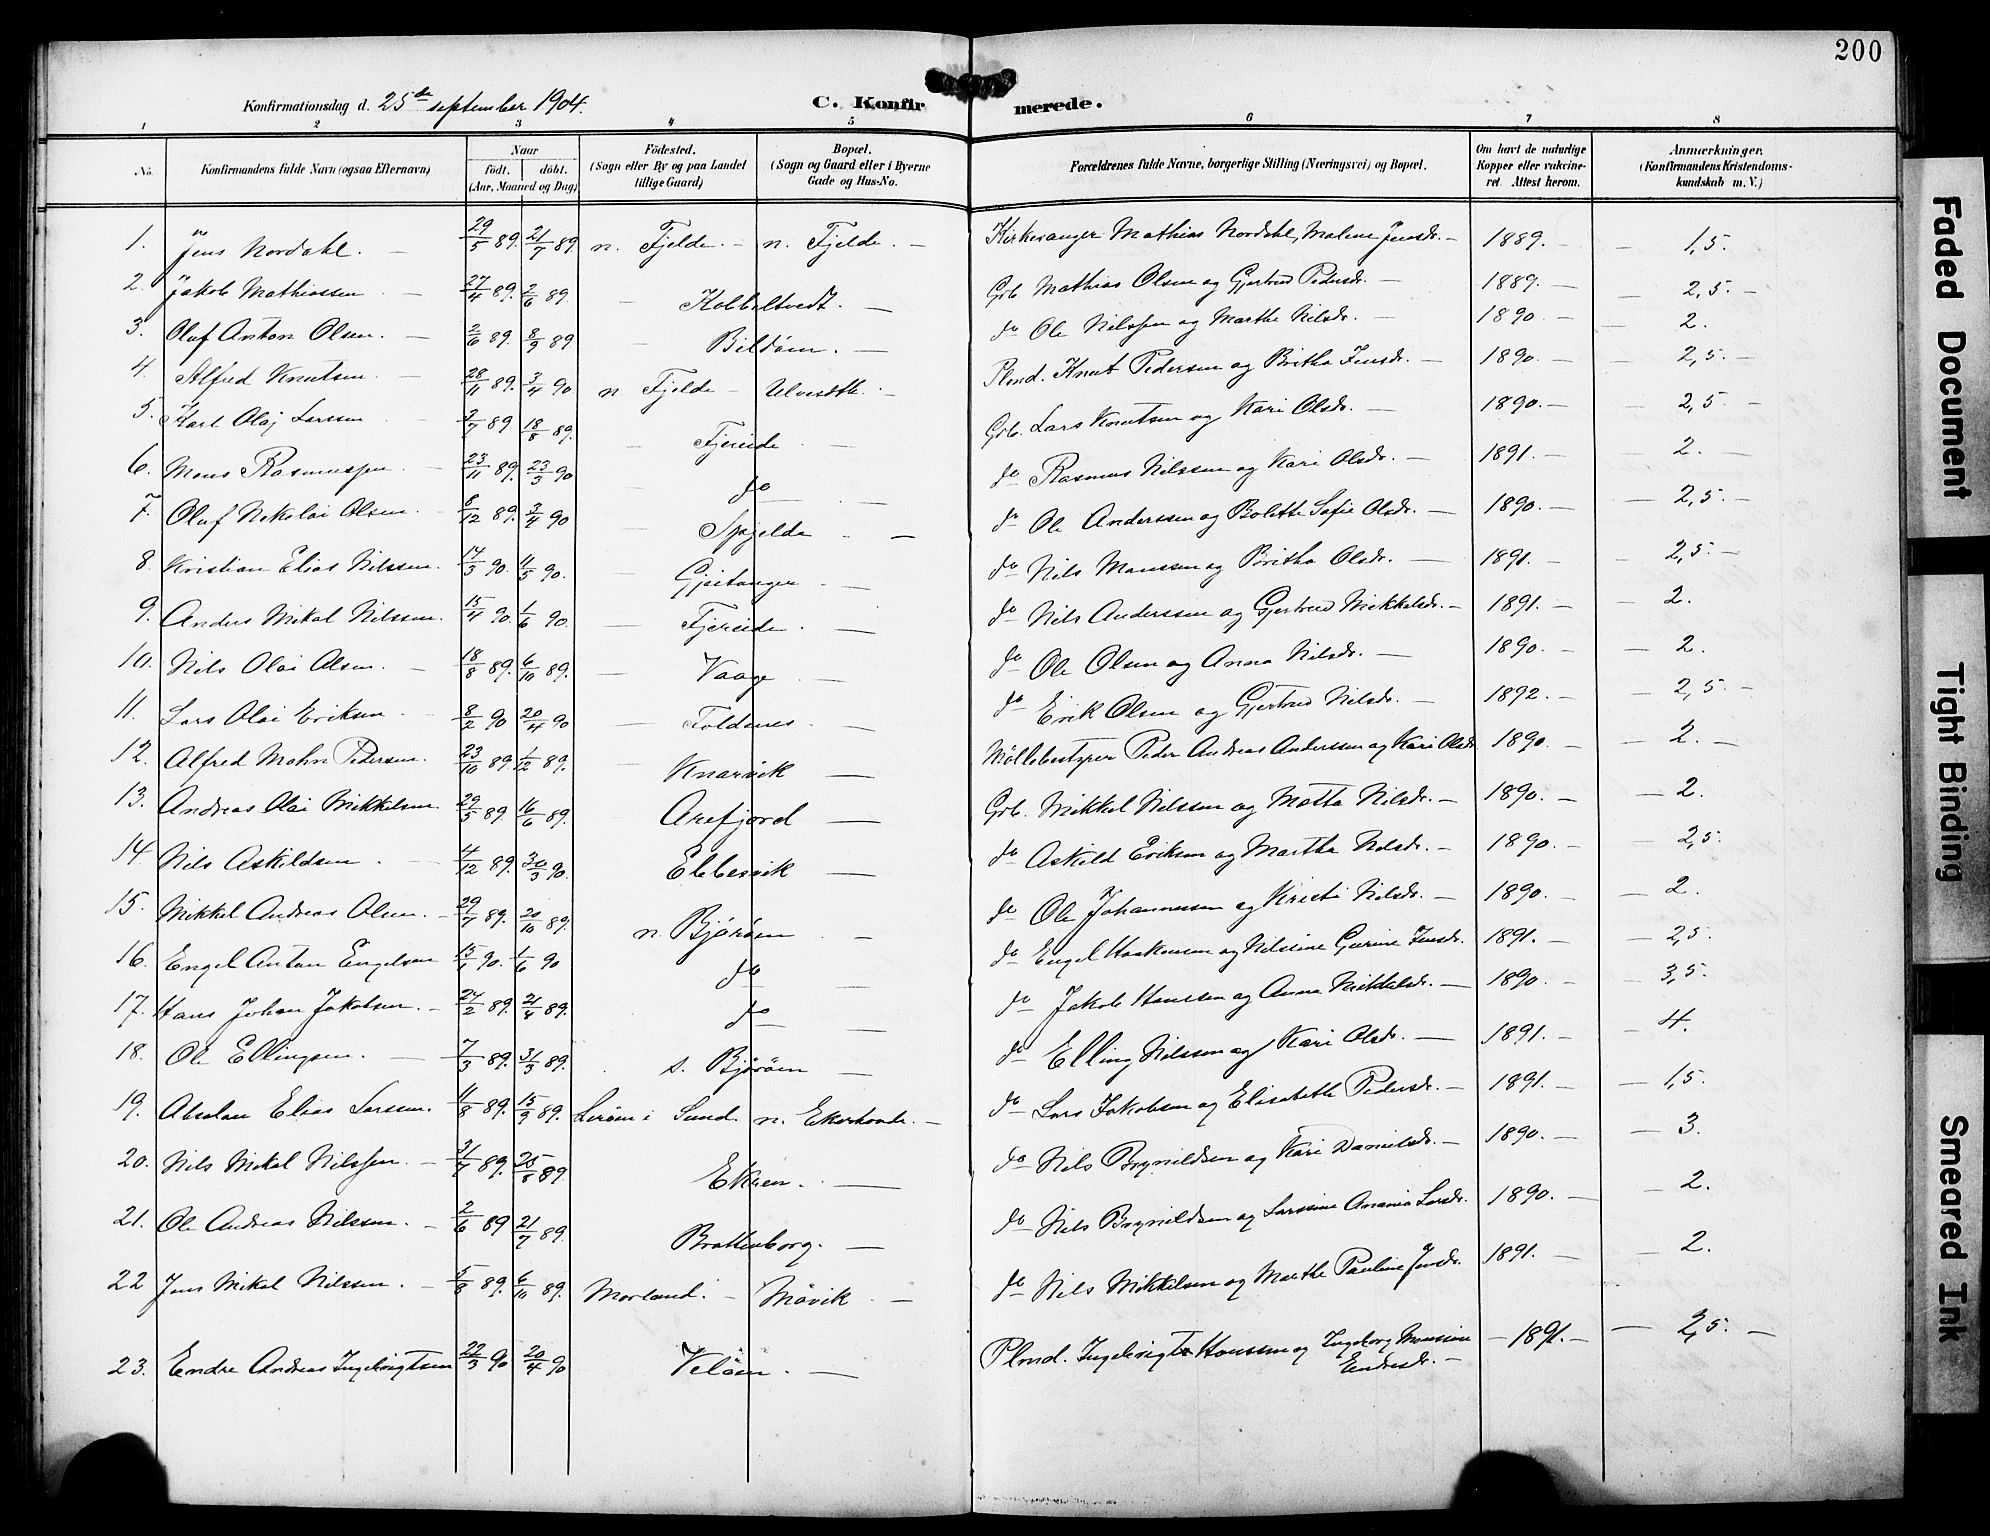 200
Konfirmationsdag d. 25de september 1904.
C. Konfirmerede.
1 2 3 4 5 6 7 8
No. Konfirmandens fulde Navn (ogsaa Efternavn) Naar født. døbt. (Aar, Maaned og Dag) Fødested. (Sogn eller By og paa Landet tillige Gaard) Bopæl. (Sogn og Gaard eller i Byerne Gade og Hus-No. Forældrenes fulde Navne, borgerlige Stilling (Næringsvei) og Bopæl. Om havt de naturlige Kopper eller vakcineret. Attest herom. Anmærkninger. (Konfirmandens Kristendomskundskab m. V.)
1. Jens Nordahl. — 29/5 89. 21/7 89 n. Fjelde. — n. Fjelde. — Kirkesanger Mathias Nordahl, Malene Jensdr. — 1889. — — 1,5.
2. Jakob Mathiassen — 27/4 89. 2/6 89 — Kolbeltvedt. — Grb. Mathias Olsen og Gjertrud Pedersdr. — 1889. — — 2,5. —
3. Olaf Anton Olsen. — 2/6 89. 8/9 89. — Bildøen. — do Ole Nilssen og Marthe Nilsdr. — 1890. — — 2.
4. Alfred Knutsen. — 28/11 89. 3/4 90. n. Fjelde — Ulvesdth. — Plmd. Knut Pedersen og Britha Jensdr. — 1890. — — 2,5. —
5. Karl Olaj Larssen 2/7 89 18/8 89. — Fjereide — Grb. Lars Knutsen og Kari Olsdr. — 1890. — — 2,5. —
6. Mons Rasmussen. — 23/11 89. 23/3 90 — do — do Rasmus Nilssen og Kari Olsdr. — 1891. — 2. —
7. Olaf Nikolai Olsen. — 8/12 89. 3/4 90 — Spjelde. — do Ole Anderssen og Bolette Sofie Olsdr. — 1890. — — 2,5. —
8. Kristian Elias Nilssen. 14/3 90. 11/5 90. — Gjeitanger. — do Nils Monssen og Britha Olsdr. — 1891. — — 2,5. —
9. Anders Mikal Nilssen. 15/4 90. 1/6 90. — Fjereide. — do Nils Anderssen og Gjertrud Mikkelsdr. — 1891. — — 2.
10. Nils Olai Olsen. — 18/8 89. 6/10 89. — Vaage. — do Ole Olsen og Anna Nilsdr. — 1890. — — 2.
11. Lars Olai Eriksen — 8/2 90 20/4 90 — Foldenes. — do Erik Olsen og Gjertrud Nilsdr. — 1892. — — 2,5. —
12. Alfred Mohn Pedersen. 23/10 89. 1/12 89. — Knarvik — Møllebestyrer Peder Andreas Anderssen og Kari Olsdr 1890. — — 2. —
13. Andreas Olai Mikkelsen 29/5 89. 16/6 89. Arefjord — Grb. Mikkel Nilssen og Metta Nilsdr. — 1890. — — 2.
14. Nils Askildsen. — 4/12 89. 30/3 90. Ebbesvik — do Askild Eriksen og Martha Nilsdr. — 1890. — — 2,5.
15. Mikkel Andreas Olsen. — 29/7 89. 20/10 89. n. Bjørøen — do Ole Johannessen og Kristi Nilsdr. — 1890. — — 2.
16. Engel Anton Engelsen 90. 1/6 90 do — do Engel Haakonsen og Nilsine Jensdr. 1891. — — 2,5.
17. Hans Johan Jakobsen. — 24/2 89. 21/4 89. do — do Jakob Hanssen og Anna Mikkelsdr. — 1890. — — 3,5.
18. Ole Ellingsen. — 7/3 89. 31/3 89. s. Bjørøen — do Elling Nilssen og Kari Olsdr. — 1891. — — 4.
19. Absalon Elias Larssen. 11/8 89. 15/9 89. Lerøen i Sund. n. Ekerhovde. — do Lars Jakobsen og Elisabeth Pedersdr. — 1891. — — 1,5.
20. Nils Mikal Nilssen. — 31/7 89. 25/8 89 Ekren. — do Nils Brynildsen og Kari Danielsdr. — 1890. — — 3.
21. Ole Andreas Nilssen. — 2/6 89 21/7 89. Brattenborg. — do Nils Brynildsen og Larssine Anania Larsdr. 1890. — — 2.
22 Jens Mikal Nilssen. — 5/8 89. 6/10 89. Morland. — Møvik. — do Nils Mikkelsen og Marthe Pauline Jensdr. 1891. — — 2.
23. Endre Andreas Ingebrigtsen 22/3 90 20/4 90 Veløen. — Plmd. Ingebrigt Hanssen og Ingeborg Monssine Endresdr. — — 1891. — — 2,5. —
Faded Document
Tight Binding
Smeared Ink